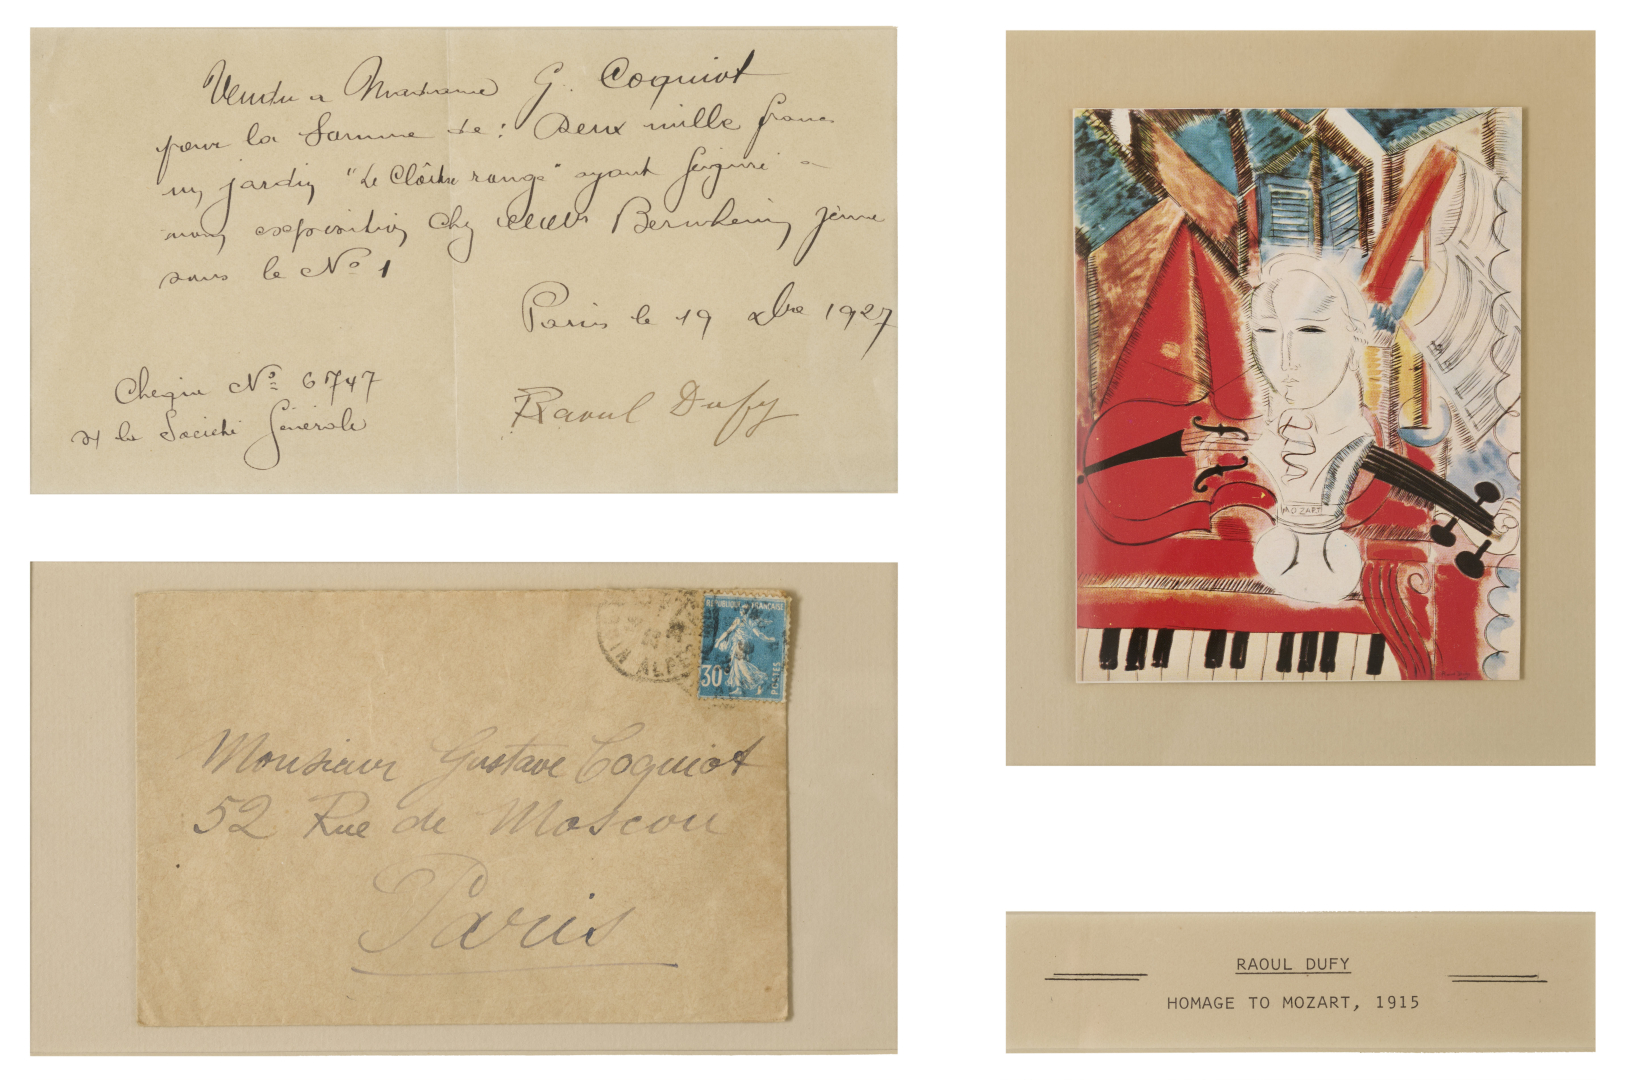 Vendu a Madame G. Coquiot
pour la Somme de : Deux mille francs
un jardin "Le Cloître rouge" ayant figuré a
mon exposition chez MM Bernheim jeune
sous le No 1
Paris le 19 xbre 1927
Cheque No 6747
la Société Générale
Raoul Dufy
REPUBLIQUE FRANÇAISE
30
POSTES
IN ALPES
Monsieur Gustave Coquiot
52 Rue de Moscou
Paris
MOZART
RAOUL DUFY
HOMAGE TO MOZART, 1915